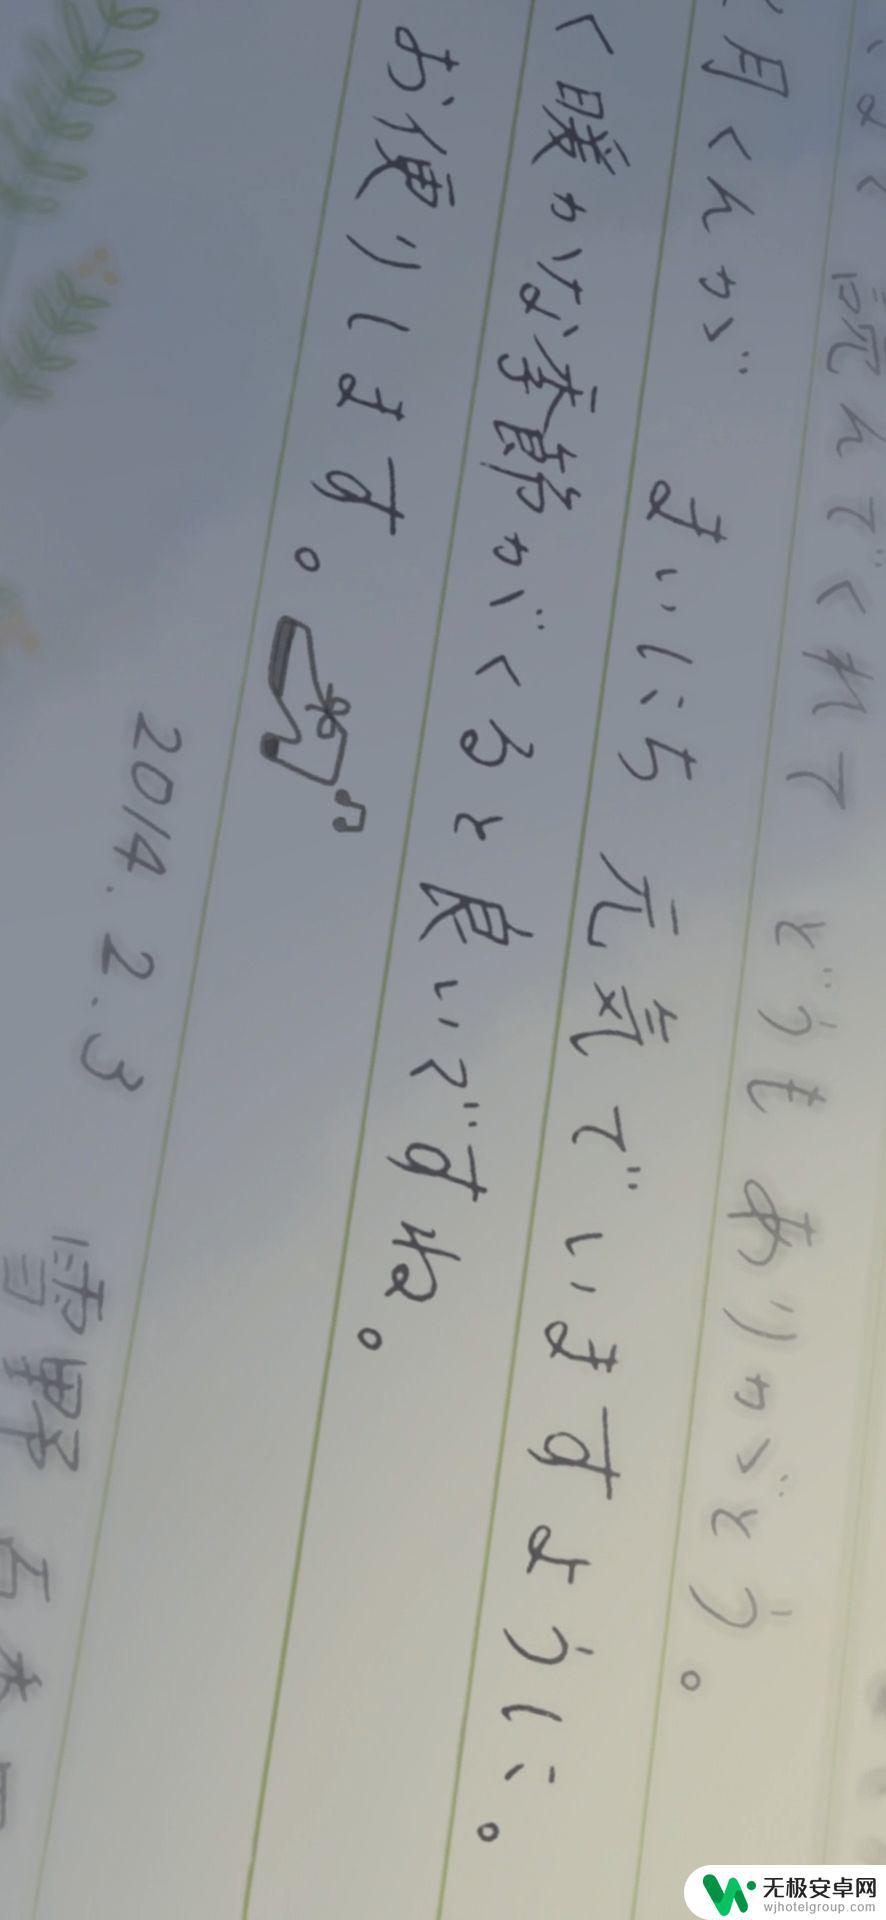 読んでくれて どうも ありがとう。
月くんが まいにち 元気でいますように。
く暖かな季節がくると良いですね。
お便りします。
2014.2.3
雪野
无极安卓网
wjhotelgroup.com